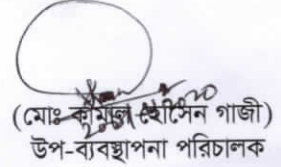 (মোঃ কামাল হোসেন গাজী)
উপ-ব্যবস্থাপনা পরিচালক